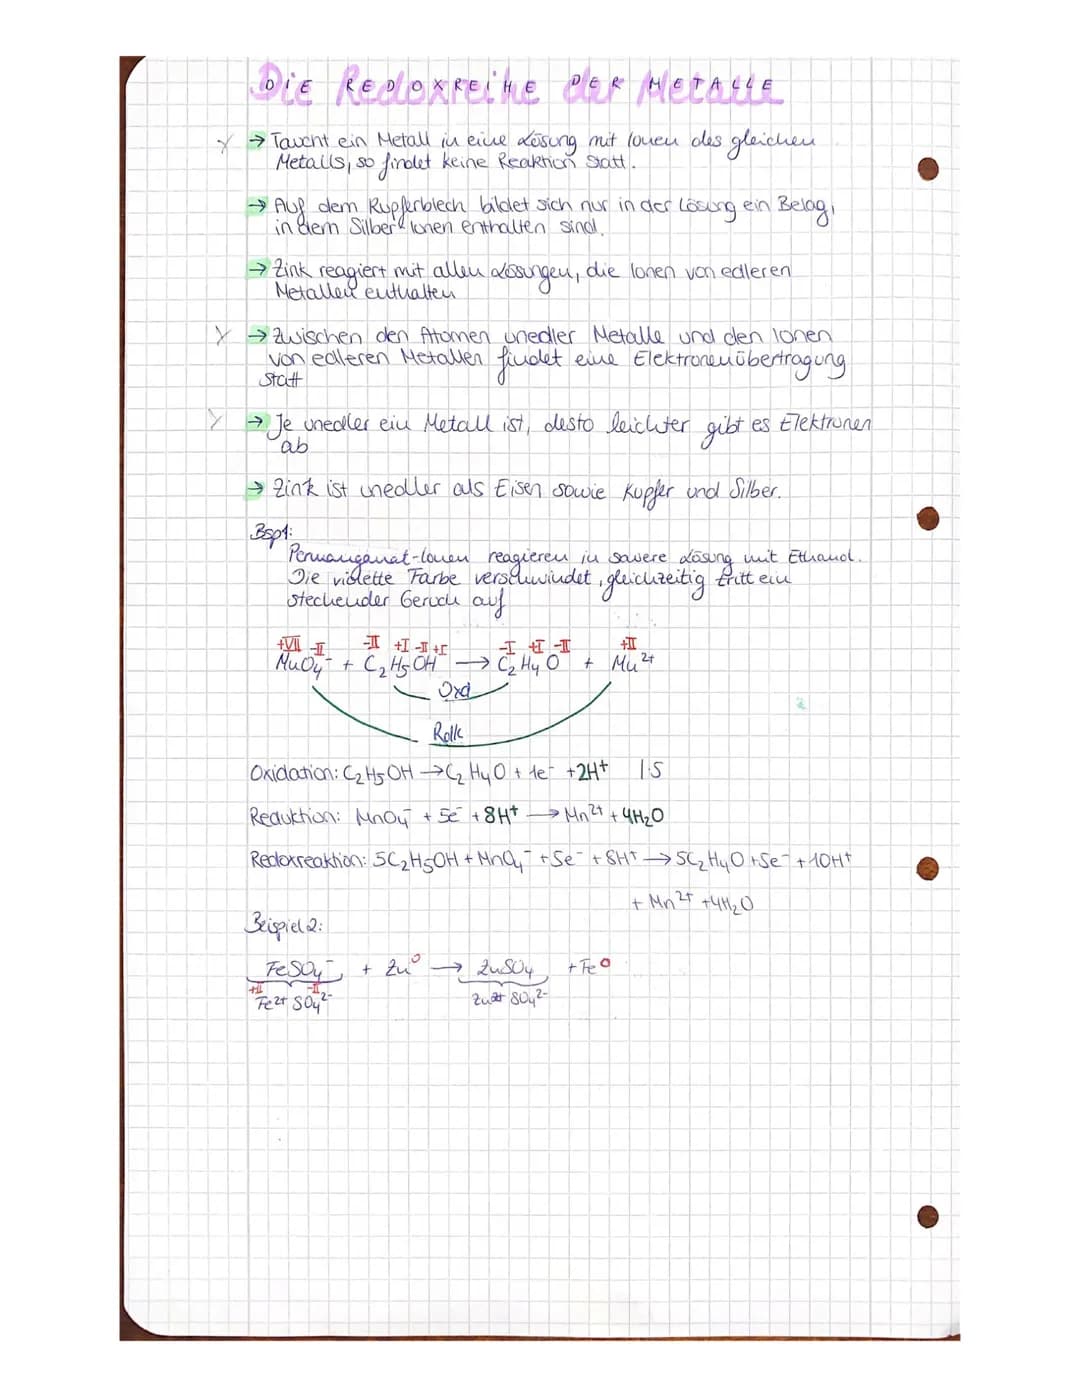 DIE REDOXREIHE DER METALLE
→ Taucht ein Metall in eine Lösung mit Ionen des gleichen
Metalls, so findet keine Reaktion statt.
→ Auf dem Kupferblech bildet sich nur in der Lösung ein Belag,
in dem Silber Ionen enthalten sind.
→ Zink reagiert mit allen Lösungen, die Ionen von edleren
Metallen enthalten
→ Zwischen den Atomen unedler Metalle und den Ionen
von edleren Metallen findet eine Elektronenübertragung
statt
→ Je unedler ein Metall ist, desto leichter gibt es Elektronen
ab
→ Zink ist unedler als Eisen sowie Kupfer und Silber.
Bsp1:
Permanganat-Ionen reagieren in saurer Lösung mit Ethanol.
Die violette Farbe verschwindet, gleichzeitig tritt ein
stechender Geruch auf
+VII -II -II +I -II +I -I +I -II +II
MnO4⁻ + C2H5OH → C2H4O + Mn²⁺
Oxd
Rdk
Oxidation: C2H5OH → C2H4O + 1e⁻ + 2H⁺ |·5
Reduktion: MnO4⁻ + 5e⁻ + 8H⁺ → Mn²⁺ + 4H2O
Redoxreaktion: 5C2H5OH + MnO4⁻ + 5e⁻ + 8H⁺ → 5C2H4O + 5e⁻ + 10H⁺
+ Mn²⁺ + 4H2O
Beispiel 2:
FeSO4⁻ + Zn⁰ → ZnSO4 + Fe⁰
+II -II
Fe²⁺ SO4²⁻ Zn²⁺ SO4²⁻